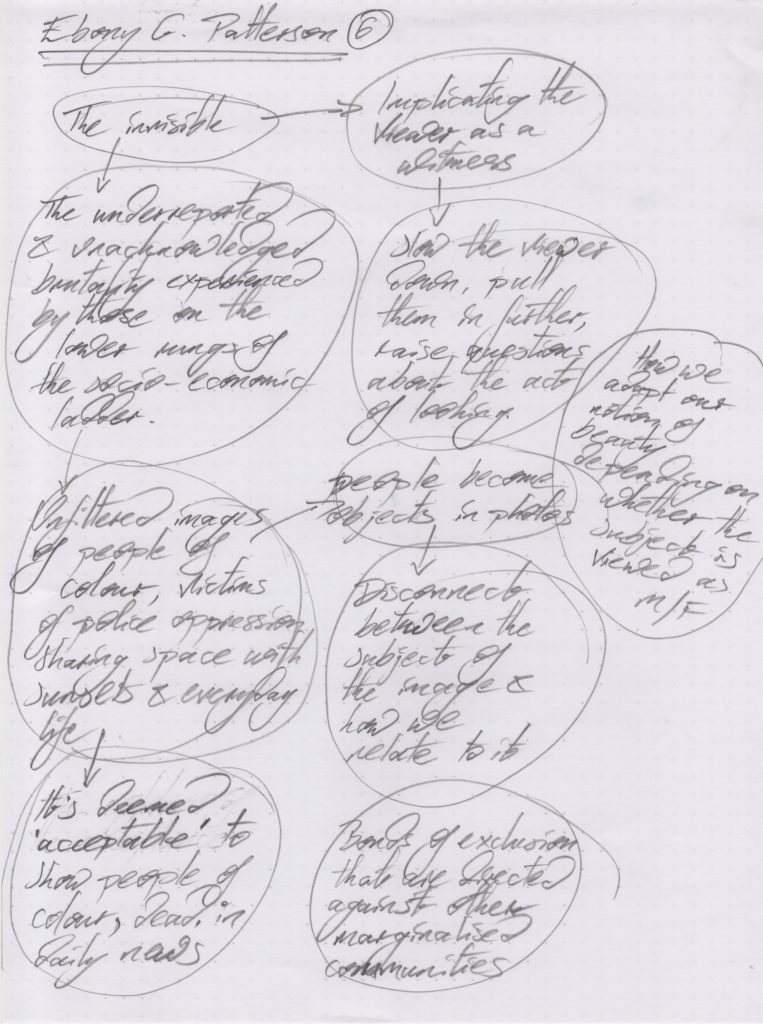 Ebony G. Patterson 6
The invisible
Implicating the
viewer as a
witness
The underreported
& unacknowledged
brutality experienced
by those on the
lower rungs of
the socio-economic
ladder.
Slow the viewer
down, pull
them in further,
raise questions
about the act
of looking.
How we
adapt our
notion of
beauty
depending on
whether the
subject is
viewed as
M/F
Unfiltered images
of people of
colour, victims
of police oppression
sharing space with
sunsets & everyday
life
people become
objects in photos
Disconnect
between the
subject of
the image &
how we
relate to it
It's deemed
'acceptable' to
show people of
colour, dead, in
daily news
Bonds of exclusion
that are directed
against other
marginalised
communities